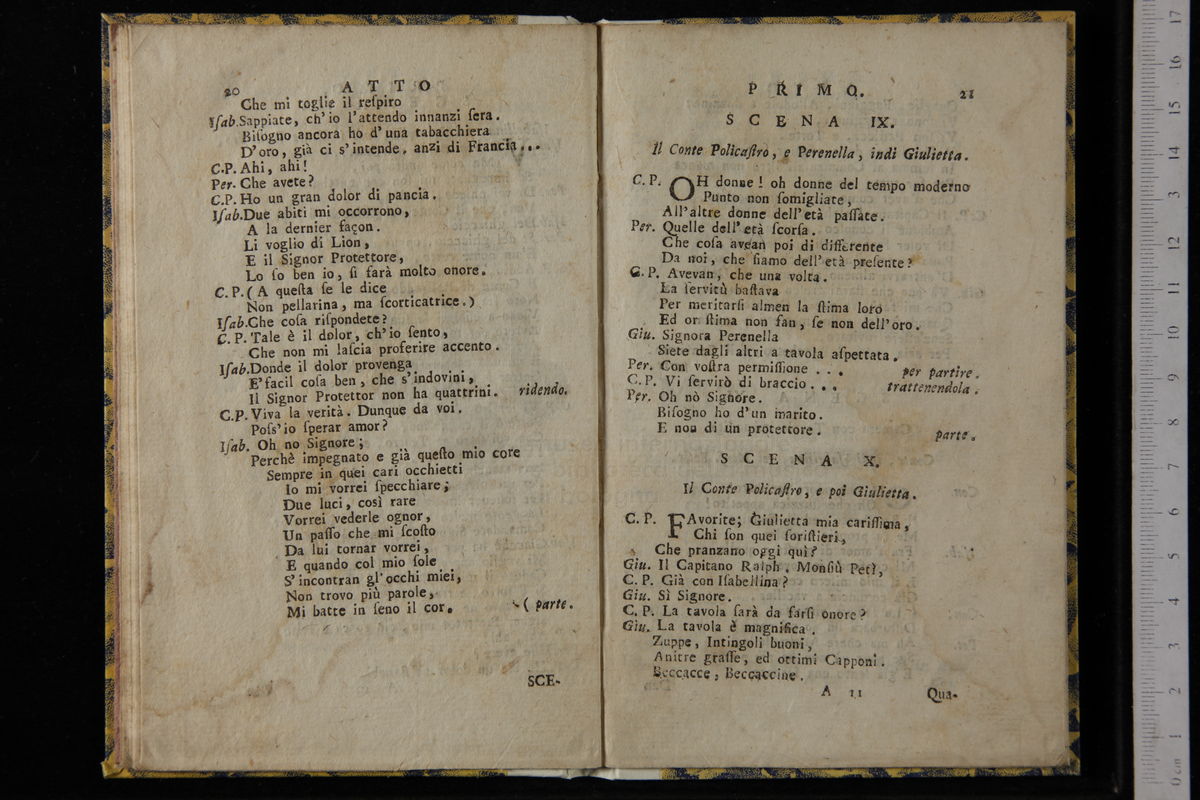 20 ATTO
Che mi toglie il reſpiro
Iſab. Sappiate, ch'io l'attendo innanzi ſera.
Biſogno ancora ho d'una tabacchiera
D'oro, già ci s'intende, anzi di Francia...
C.P. Ahi, ahi!
Per. Che avete?
C.P. Ho un gran dolor di pancia.
Iſab. Due abiti mi occorrono,
A la dernier façon.
Li voglio di Lion,
E il Signor Protettore,
Lo ſo ben io, ſi farà molto onore.
C.P. (A queſta ſe le dice
Non pellarina, ma ſcorticatrice.)
Iſab. Che coſa riſpondete?
C.P. Tale è il dolor, ch'io ſento,
Che non mi laſcia proferire accento.
Iſab. Donde il dolor provenga
E' facil coſa ben, che s'indovini,
Il Signor Protettor non ha quattrini. ridendo.
C.P. Viva la verità. Dunque da voi.
Poſs'io ſperar amor?
Iſab. Oh no Signore;
Perchè impegnato e già queſto mio core
Sempre in quei cari occhietti
Io mi vorrei ſpecchiare;
Due luci, così rare
Vorrei vederle ognor,
Un paſſo che mi ſcoſto
Da lui tornar vorrei,
E quando col mio ſole
S'incontran gl'occhi miei,
Non trovo più parole,
Mi batte in ſeno il cor. (parte.
SCE-
PRIMO. 21
SCENA IX.
Il Conte Policaſtro, e Perenella, indi Giulietta.
C.P. OH donne! oh donne del tempo moderno
Punto non ſomigliate,
All'altre donne dell'età paſſate.
Per. Quelle dell'età ſcorſa.
Che coſa avean poi di differente
Da noi, che ſiamo dell'età preſente?
C.P. Avevan, che una volta.
La ſervitù baſtava
Per meritarſi almen la ſtima loro
Ed or ſtima non fan, ſe non dell'oro.
Giu. Signora Perenella
Siete dagli altri a tavola aſpettata.
Per. Con voſtra permiſſione... per partire.
C.P. Vi ſervirò di braccio... trattenendola.
Per. Oh nò Signore.
Biſogno ho d'un marito.
E non di un protettore. parte.
SCENA X.
Il Conte Policaſtro, e poi Giulietta.
C.P. FAvorite; Giulietta mia cariſſima,
Chi ſon quei foriſtieri,
Che pranzano oggi quì?
Giu. Il Capitano Ralph. Monſiù Petì,
C.P. Già con Iſabellina?
Giu. Sì Signore.
C.P. La tavola farà da farſi onore?
Giu. La tavola è magnifica.
Zuppe, Intingoli buoni,
Anitre graſſe, ed ottimi Capponi.
Beccacce, Beccaccine.
A 11 Qua-